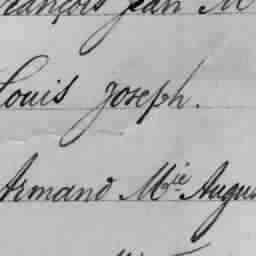 François Jean M
Louis Joseph.
Armand Mie Augu